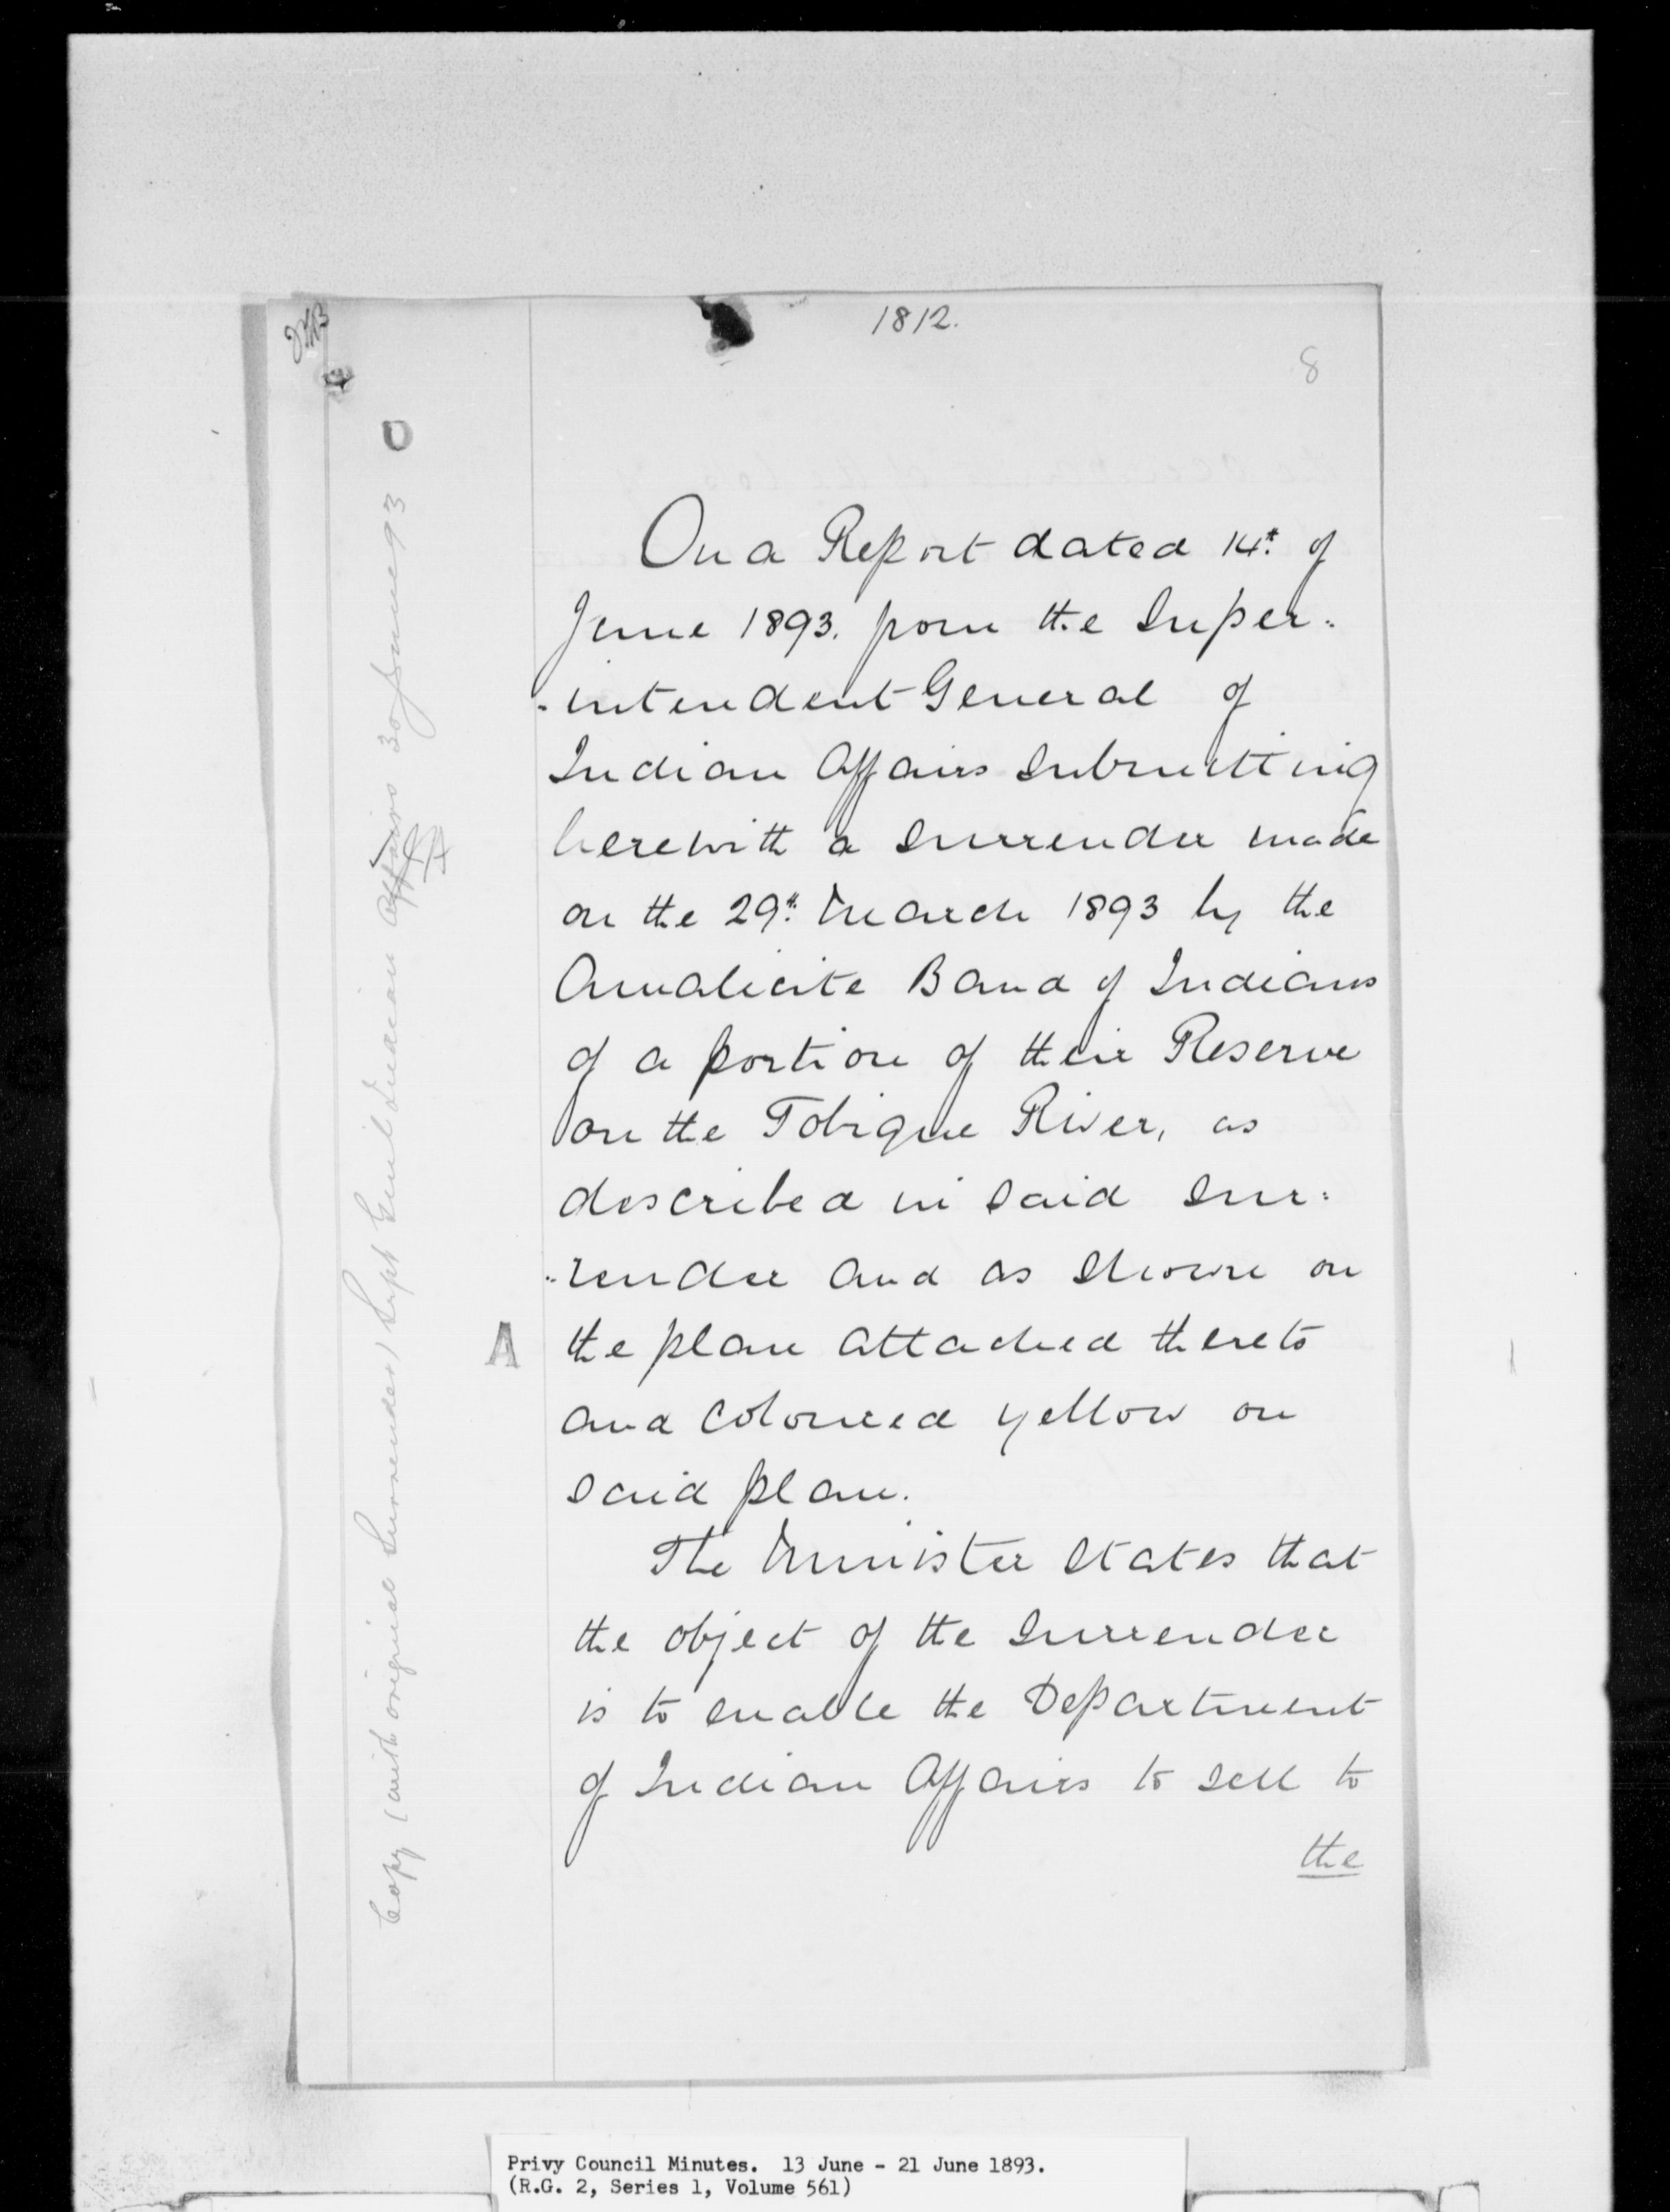 1812.
8
On a Report dated 14th of
June 1893. from the Super-
-intendent General of
Indian Affairs submitting
herewith a surrender made
on the 29th March 1893 by the
Amalicite Band of Indians
of a portion of their Reserve
on the Tobique River, as
described in said sur-
-render and as shown on
A
the plan attached thereto
and coloured yellow on
said plan.
The Minister states that
the object of the surrender
is to enable the Department
of Indian Affairs to sell to
the
Copy (with original Surrender) Supt Genl Indian Affairs 30 June 93
Privy Council Minutes. 13 June - 21 June 1893.
(R.G. 2, Series 1, Volume 561)